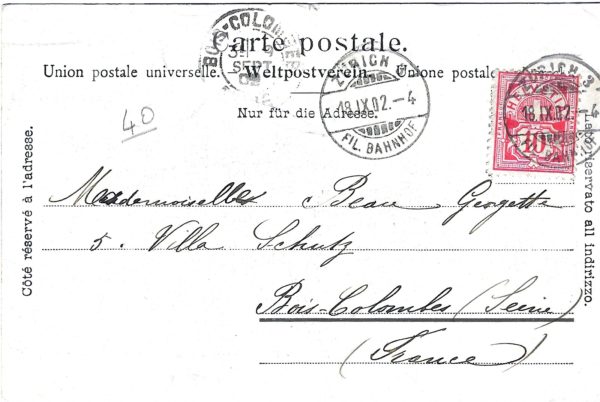 Carte postale.
Union postale universelle. Weltpostverein. Unione postale
Nur für die Adresse.
BOIS-COLOMBES
SEPT
02
ZÜRICH 3
18.IX.02.-4
FIL. BAHNHOF
HELVETIA
10
ZÜRICH 3
18.IX.02.-4
BAHNHOF
40
Côté réservé à l'adresse.
Mademoiselle Beau Georgette
5. Villa Schutz
Bois-Colombes (Seine)
(France)
Lato riservato all indirizzo.